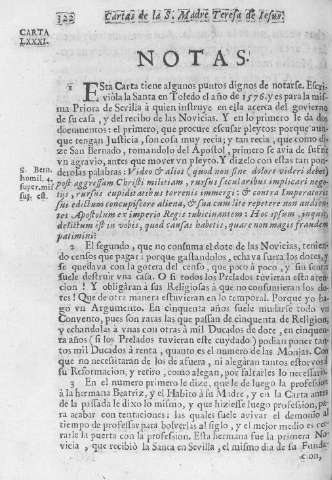 322 Cartas de la S. Madre Teresa de Iesus.
CARTA
LXXXI.
NOTAS.
1 ESta Carta tiene algunos puntos dignos de notarse. Escri-
viòla la Santa en Toledo el año de 1576. y es para la mis-
ma Priora de Sevilla à quien instruye en ella acerca del govierno
de su casa, y del recibo de las Novicias. Y en lo primero le da dos
documentos: el primero, que procure escusar pleytos: porque aun-
que tengan Justicia, son cosa muy recia; y tan recia, que como di-
ze San Bernardo, tomandolo del Apostol, primero se avia de sufrir
vn agravio, antes que mover vn pleyto. Y dizelo con estas tan pon-
S. Bern.
homil. 4.
super mis
sus est.
deròsas palabras: Video & alios (quod non sine dolore videri debet)
post aggressam Christi militiam, rursus sæcularibus implicari nego-
tijs, rursus cupiditatibus terrenis immergi: & contra Imperatoris
sui edictum concupiscere aliena, & sua cum lite repetere non audien-
tes Apostolum ex imperio Regis tubicinantem: Hoc ipsum, inquit,
delictum est in vobis, quod causas habetis, quare non magis fraudem
patimini?
2 El segundo, que no consuma el dote de las Novicias, tenien-
do censos que pagar: porque gastandolos, echava fuera los dotes, y
se quedava con la gotera del censo, que poco à poco, y sin sentir
suele destruir vna casa. O si todos los Prelados tuvieran esta aten-
cion! Y obligàran à sus Religiosas à que no consumieran los do-
tes! Que de otra manera estuvieran en lo temporal. Porque yo ha-
go vn Argumento. En cinquenta años suele mudarse todo vn
Convento, pues son raras las que passan de cinquenta de Religion,
y echandolas à vnas con otras à mil Ducados de dote, en cinquen-
ta años (si los Prelados tuvieran este cuydado) podian poner tan-
tos mil Ducados à renta, quanto es el numero de las Monjas. Con
que no necessitàran de los de afuera, ni alegàran tantos estorvos à
su Reformacion, y retiro, como alegan, por faltarles lo necessario.
3 En el numero primero le dize, que le dè luego la profession
à la hermana Beatriz, y el Habito à su Madre, y en la Carta antes
de la passada le dixo lo mismo, y que hiziesse luego profession, pa-
ra acabar con tentaciones: las quales suele avivar el demonio al
tiempo de professar para bolverlas al siglo, y el mejor medio es cer-
rarle la puerta con la profession. Esta hermana fue la primera No-
vicia, que recibiò la Santa en Sevilla, el mismo dia de su Funda-
cion,